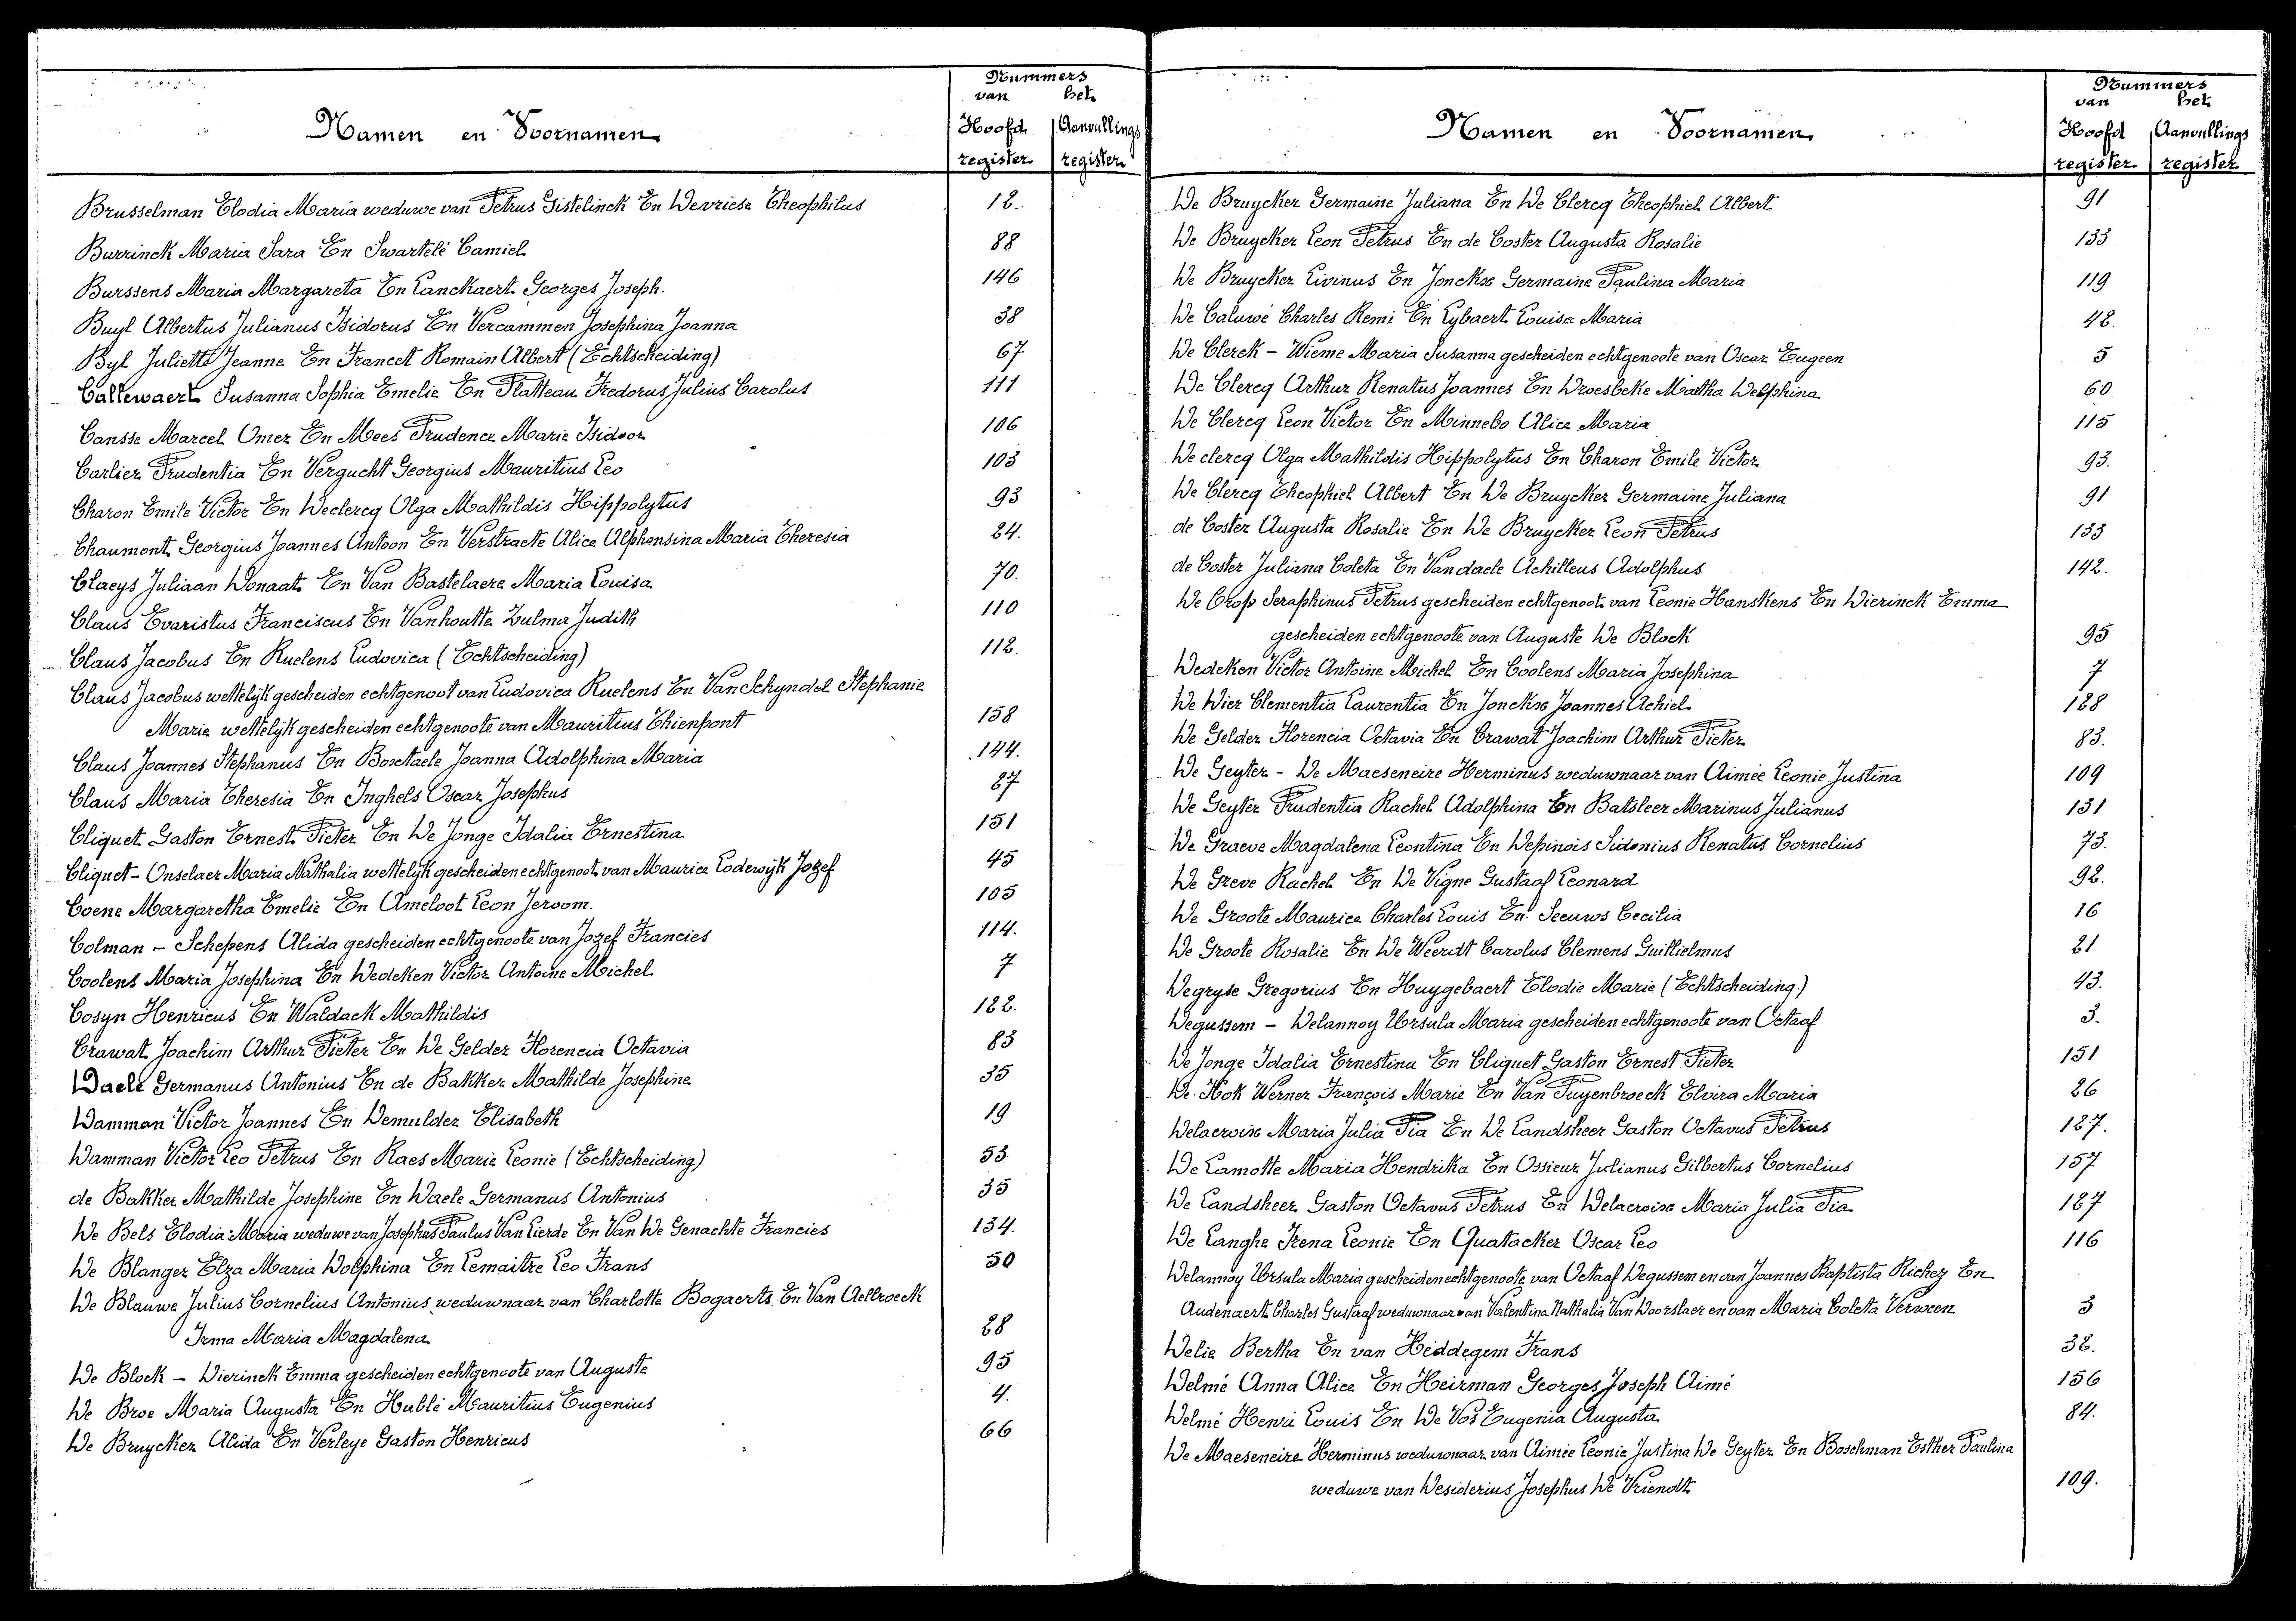 Nummers
van het
Namen en Voornamen
Hoofd Aanvullings
register register
Brusselman Elodia Maria weduwe van Petrus Gistelinck En Devriese Theophilus 12.
Burrinck Maria Sara En Swartelé Camiel 88
Burssens Maria Margareta En Lanckaert Georges Joseph. 146
Buyl Albertus Julianus Isidorus En Vercammen Josephina Joanna 38
Byl Juliette Jeanne En Francet Romain Albert (Echtscheiding) 67
Callewaert Susanna Sophia Emelie En Platteau Fredorus Julius Carolus 111
Cansse Marcel Omer En Mees Prudence Marie Isidoor 106
Carlier Prudentia En Vergucht Georgius Mauritius Leo 103
Charon Emile Victor En Declercq Olga Mathildis Hippolytus 93
Chaumont Georgius Joannes Antoon En Verstraete Alice Alphonsina Maria Theresia 24.
Claeys Juliaan Donaat En Van Bastelaere Maria Louisa 70.
Claus Evaristus Franciscus En Vanhoutte Zulma Judith 110
Claus Jacobus En Ruelens Ludovica (Echtscheiding) 112.
Claus Jacobus wettelijk gescheiden echtgenoot van Ludovica Ruelens En Van Schyndel Stephanie
Marie wettelijk gescheiden echtgenoote van Mauritius Thienpont 158
Claus Joannes Stephanus En Boxstaele Joanna Adolphina Maria 144.
Claus Maria Theresia En Inghels Oscar Josephus 87
Cliquet Gaston Ernest Pieter En De Jonge Idalia Ernestina 151
Cliquet - Onselaer Maria Nathalia wettelijk gescheiden echtgenoot van Maurice Lodewijk Jozef 45
Coene Margaretha Emelie En Ameloot Leon Jeroom. 105
Colman - Schepens Alida gescheiden echtgenoote van Jozef Francies 114.
Coolens Maria Josephina En Dedeken Victor Antoine Michel 7
Cosyn Henricus En Waldack Mathildis 122.
Crawat Joachim Arthur Pieter En De Gelder Florencia Octavia 83
Daele Germanus Antonius En de Bakker Mathilde Josephine 35
Damman Victor Joannes En Demulder Elisabeth 19
Damman Victor Leo Petrus En Raes Marie Leonie (Echtscheiding) 53
de Bakker Mathilde Josephine En Daele Germanus Antonius 35
De Bels Elodia Maria weduwe van Josephus Paulus Van Lierde En Van De Genachte Francies 134.
De Blanger Elza Maria Dolphina En Lemaitre Leo Frans 50
De Blauwe Julius Cornelius Antonius weduwnaar van Charlotte Bogaerts En Van Aelbroeck
Irma Maria Magdalena 28
De Block - Dierinck Emma gescheiden echtgenoote van Auguste 95
De Broe Maria Augusta En Hublé Mauritius Eugenius 4.
De Bruycker Alida En Verleye Gaston Henricus 66
Nummers
van het
Namen en Voornamen
Hoofd Aanvullings
register register
De Bruycker Germaine Juliana En De Clercq Theophiel Albert 91
De Bruycker Leon Petrus En de Coster Augusta Rosalie 133
De Bruycker Livinus En Jonckx Germaine Paulina Maria 119
De Caluwé Charles Remi En Lybaert Louisa Maria 42.
De Clerck - Wieme Maria Susanna gescheiden echtgenoote van Oscar Eugeen 5
De Clercq Arthur Renatus Joannes En Droesbeke Martha Delphina 60
De Clercq Leon Victor En Minnebo Alice Maria 115
De clercq Olga Mathildis Hippolytus En Charon Emile Victor 93.
De Clercq Theophiel Albert En De Bruycker Germaine Juliana 91
de Coster Augusta Rosalie En De Bruycker Leon Petrus 133
de Coster Juliana Coleta En Vandaele Achilleus Adolphus 142.
De Crop Seraphinus Petrus gescheiden echtgenoot van Leonie Hanskens En Dierinck Emma
gescheiden echtgenoote van Auguste De Block 95
Dedeken Victor Antoine Michel En Coolens Maria Josephina 7
De Dier Clementia Laurentia En Jonckx Joannes Achiel 128
De Gelder Florencia Octavia En Crawat Joachim Arthur Pieter 83.
De Geyter - De Maeseneire Herminus weduwnaar van Aimée Leonie Justina 109
De Geyter Prudentia Rachel Adolphina En Batsleer Marinus Julianus 131
De Graeve Magdalena Leontina En Depinois Sidonius Renatus Cornelius 73.
De Greve Rachel En De Vigne Gustaaf Leonard 92.
De Groote Maurice Charles Louis En Seeuws Cecilia 16
De Groote Rosalie En De Weerdt Carolus Clemens Guillielmus 21
Degryse Gregorius En Huygebaert Elodie Marie (Echtscheiding.) 43.
Degussem - Delannoy Ursula Maria gescheiden echtgenoote van Octaaf 3.
De Jonge Idalia Ernestina En Cliquet Gaston Ernest Pieter 151
De Kok Werner François Marie En Van Puyenbroeck Elvira Maria 26
Delacroix Maria Julia Pia En De Landsheer Gaston Octavus Petrus 127.
De Lamotte Maria Hendrika En Ossieur Julianus Gilbertus Cornelius 157
De Landsheer Gaston Octavus Petrus En Delacroix Maria Julia Pia 127
De Langhe Irena Leonie En Quatacker Oscar Leo 116
Delannoy Ursula Maria gescheiden echtgenoote van Octaaf Degussem en van Joannes Baptista Richez En
Audenaert Charles Gustaaf weduwnaar van Valentina Nathalia Van Doorslaer en van Maria Coleta Verween 3
Delie Bertha En van Hiddegem Frans 32.
Delmé Anna Alice En Heirman Georges Joseph Aimé 156
Delmé Henri Louis En De Vos Eugenia Augusta 84.
De Maeseneire Herminus weduwnaar van Aimée Leonie Justina De Geyter En Boschman Esther Paulina
weduwe van Desiderius Josephus De Vriendt 109.